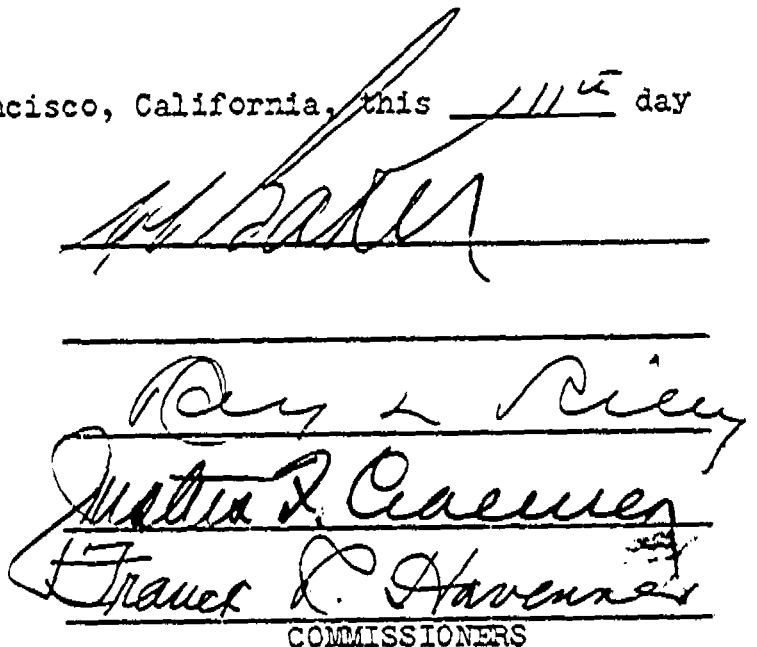 ncisco, California, this 11th day
Baker
Ray L Riley
Justus F. Craemer
Franck R. Havenner
COMMISSIONERS